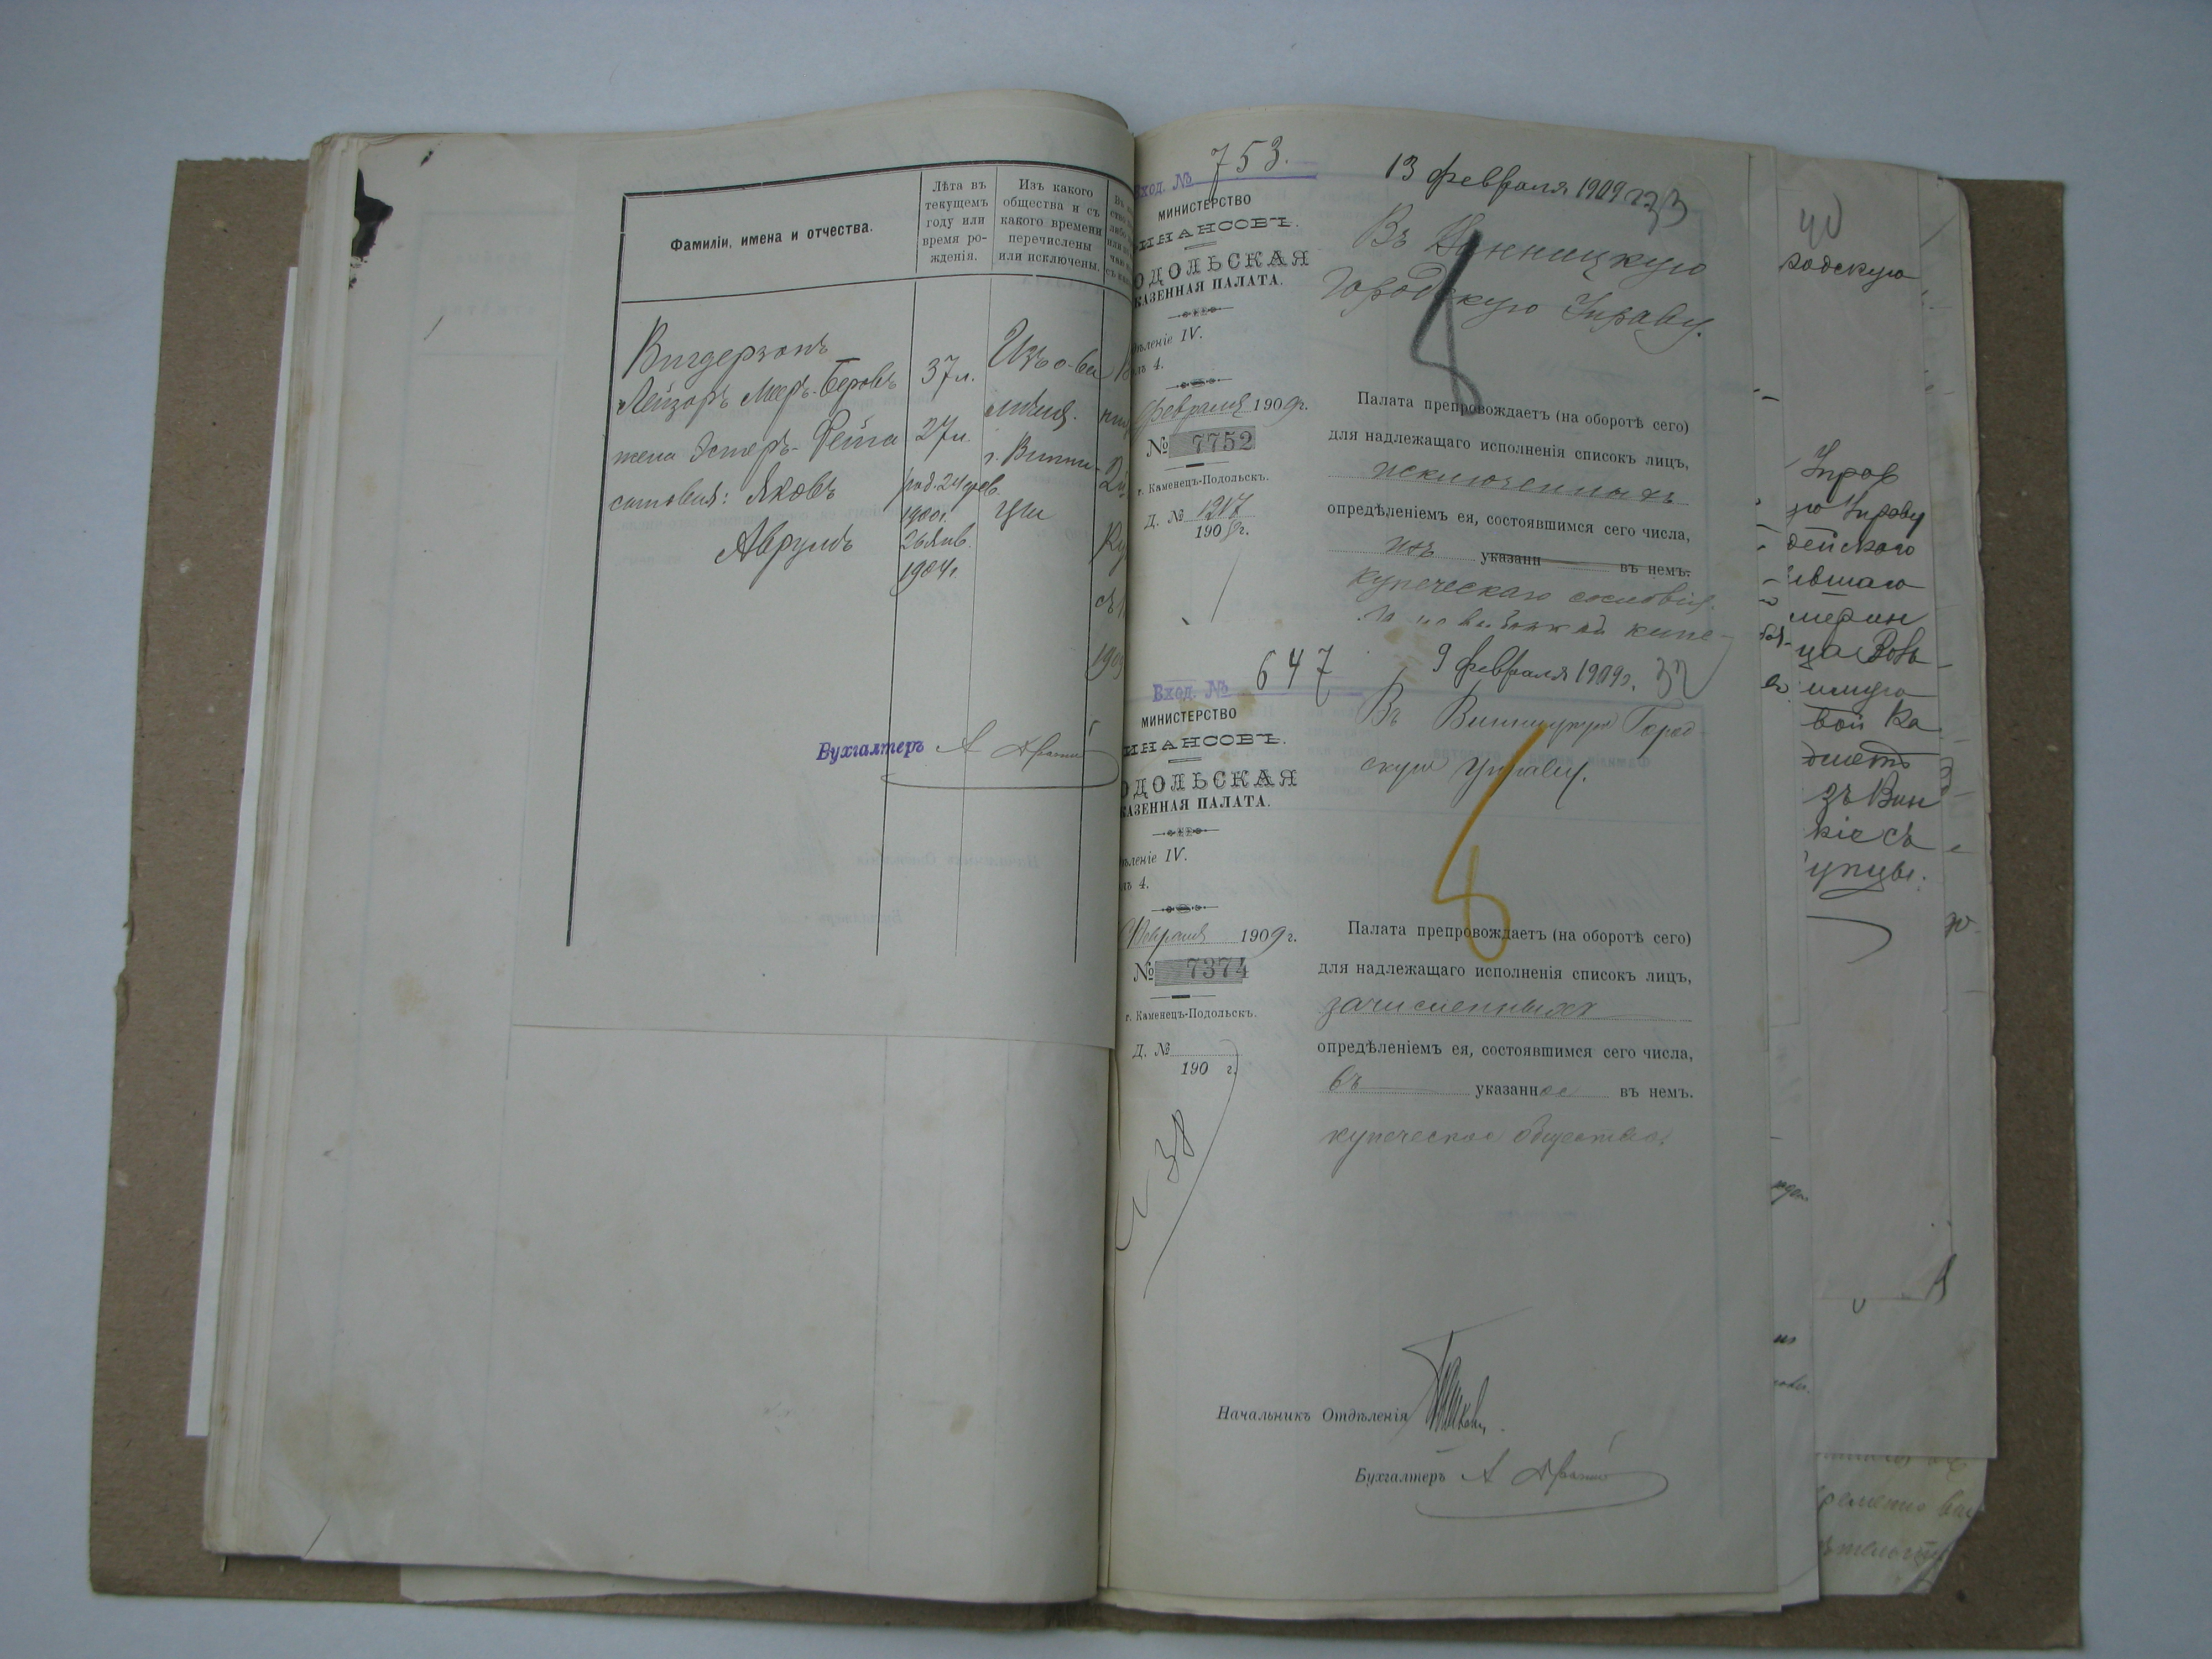 Фамиліи, имена и отчества.
Лѣта въ
текущемъ
году или
время ро-
жденія.
Изъ какого
общества и съ
какого времени
перечислены
или исключены.
Вигдерзонъ
Лейзоръ Меер-Беровъ
37 л.
Изъ о-ва
жена Эстеръ-Фейга
27 л.
г. Винни-
сыновья: Яковъ
род. 24 фев.
1900 г.
цы
Аврумъ
26 Янв.
1904 г.
Бухгалтеръ А
Вход. № 753.
13 февраля 1909 г. 33
МИНИСТЕРСТВО
ИНАНСОВЪ.
ОДОЛЬСКАЯ
КАЗЕННАЯ ПАЛАТА.
ѣленіе IV.
лъ 4.
Февраля 1909 г.
№ 7752
г. Каменецъ-Подольскъ.
Д. № 1217
1909 г.
Въ Винницкую
Городскую Управу.
Палата препровождаетъ (на оборотѣ сего)
для надлежащаго исполненія список лицъ,
исключенныхъ
опредѣленіемъ ея, состоявшимся сего числа,
изъ указанн въ немъ.
купеческаго сословія.
Вход. № 647
9 февраля 1909 г. 32
МИНИСТЕРСТВО
ИНАНСОВЪ.
ОДОЛЬСКАЯ
КАЗЕННАЯ ПАЛАТА.
ѣленіе IV.
лъ 4.
Февраля 1909 г.
№ 7374
г. Каменецъ-Подольскъ.
Д. №
190 г.
38
Въ Винницкую Город
скую Управу.
Палата препровождаетъ (на оборотѣ сего)
для надлежащаго исполненія список лицъ,
зачисленныхъ
опредѣленіемъ ея, состоявшимся сего числа,
въ указанное въ немъ.
купеческое общество.
Начальникъ Отдѣленія
Бухгалтеръ А
40
родскую
Упров
ую Управу
дейского
ившаго
зъ Вин
кіе съ
упцы.